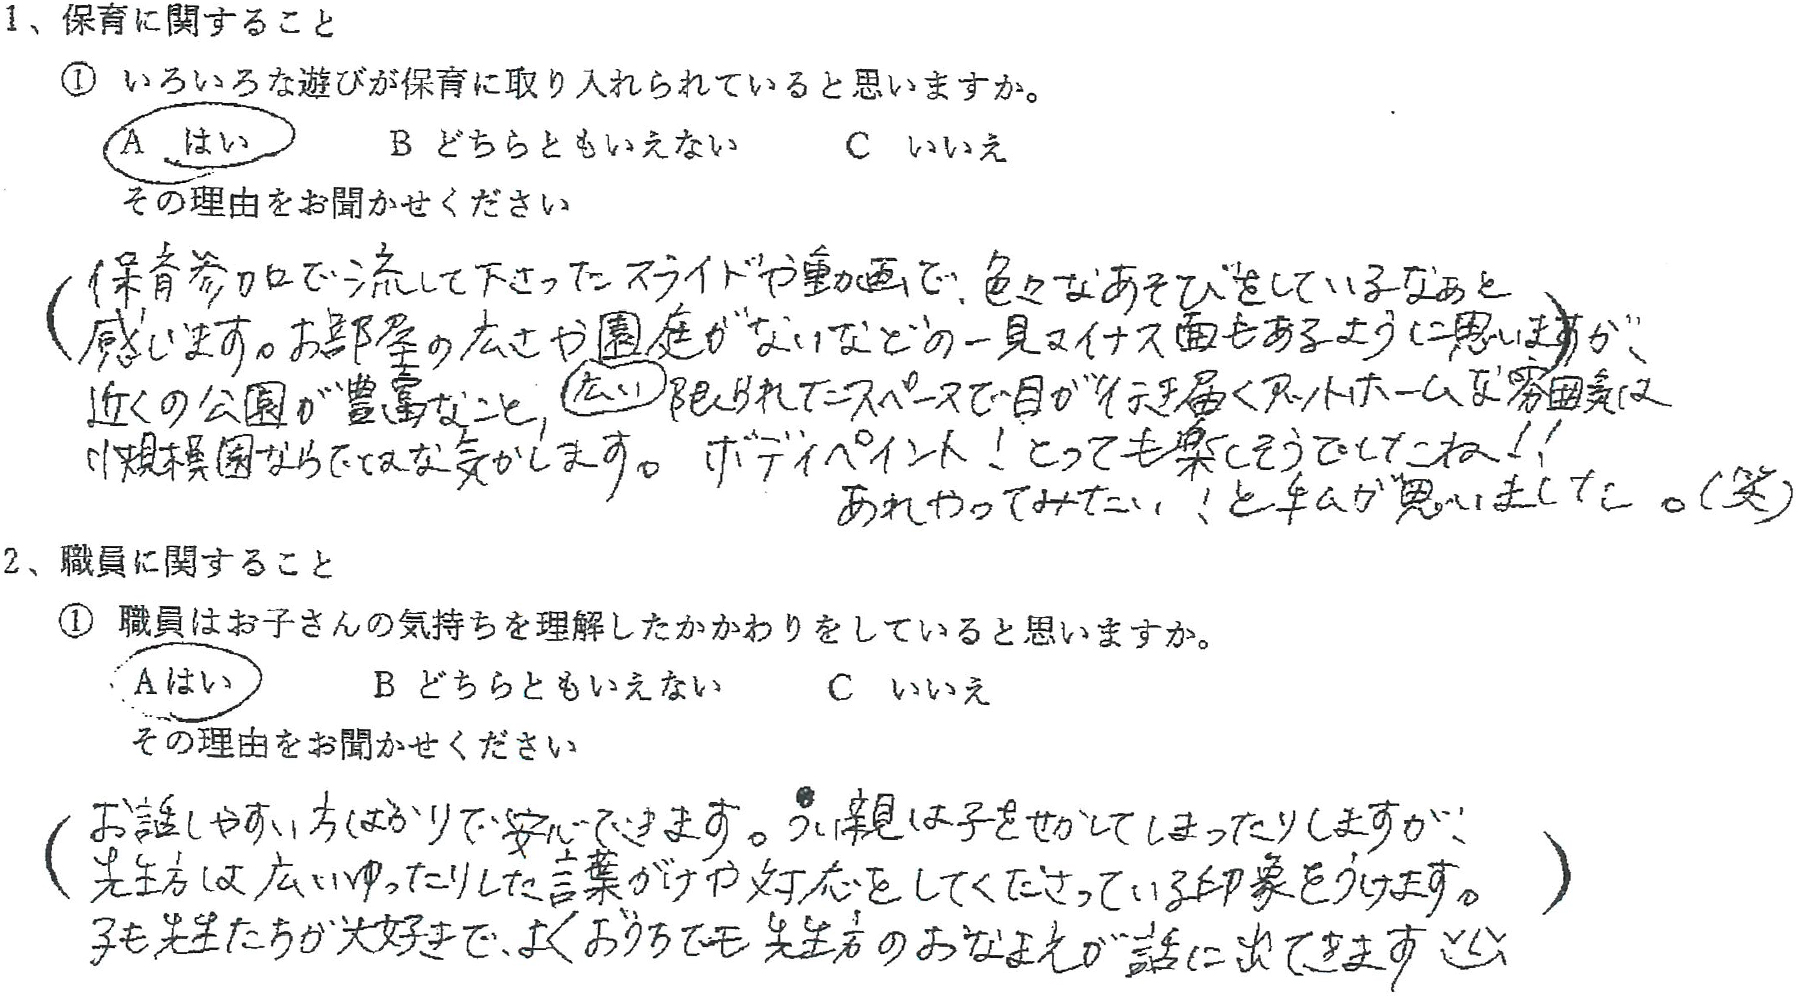 1、保育に関すること
① いろいろな遊びが保育に取り入れられていると思いますか。
A はい B どちらともいえない C いいえ
その理由をお聞かせください
(保育参加で流して下さったスライドや動画で、色々なあそびをしているなぁと
感じます。お部屋の広さや園庭がないなどの一見マイナス面もあるように思いますが、)
近くの公園が豊富なこと, 広い 限られたスペースで目が行き届くアットホームな雰囲気は
小規模園ならではな気がします。 ボディペイント!とっても楽しそうでしたね!!
あれやってみたい!と私が思いました。(笑)
2、職員に関すること
① 職員はお子さんの気持ちを理解したかかわりをしていると思いますか。
Aはい B どちらともいえない C いいえ
その理由をお聞かせください
(お話しやすい方ばかりで安心できます。つい親は子をせかしてしまったりしますが、
先生方は広いゆったりした言葉がけや対応をしてくださっている印象をうけます。)
子も先生たちが大好きで、よくおうちでも先生方のおなまえが話に出てきます